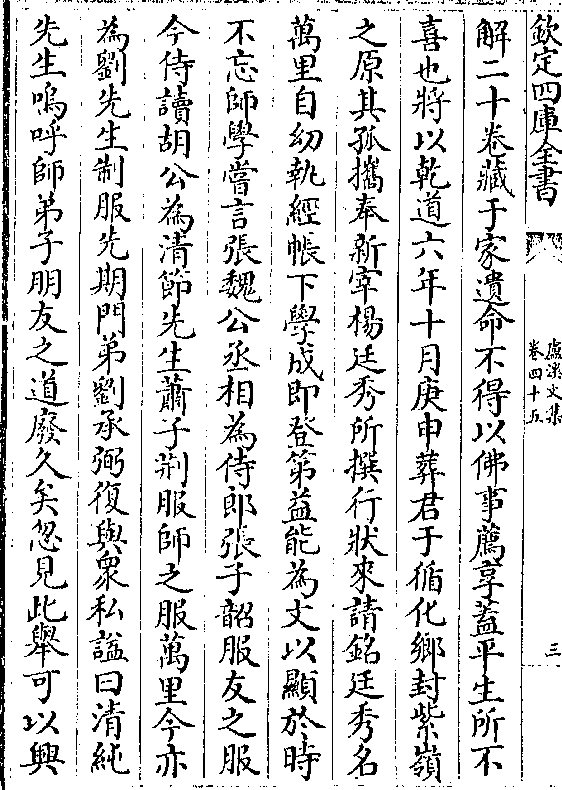 欽定四庫全書
盧溪文集
卷四十五
三
解二十卷藏于家遺命不得以佛事薦享蓋平生所不
喜也將以乾道六年十月庚申葬君于循化鄉封紫嶺
之原其孤攜奉新宰楊廷秀所撰行狀來請銘廷秀名
萬里自幼執經帳下學成即登第益能為文以顯於時
不忘師學嘗言張魏公丞相為侍郎張子韶服友之服
今侍讀胡公為清節先生蕭子荆服師之服萬里今亦
為劉先生制服先期門弟劉承弼復與衆私諡曰清純
先生嗚呼師弟子朋友之道廢久矣忽見此舉可以興